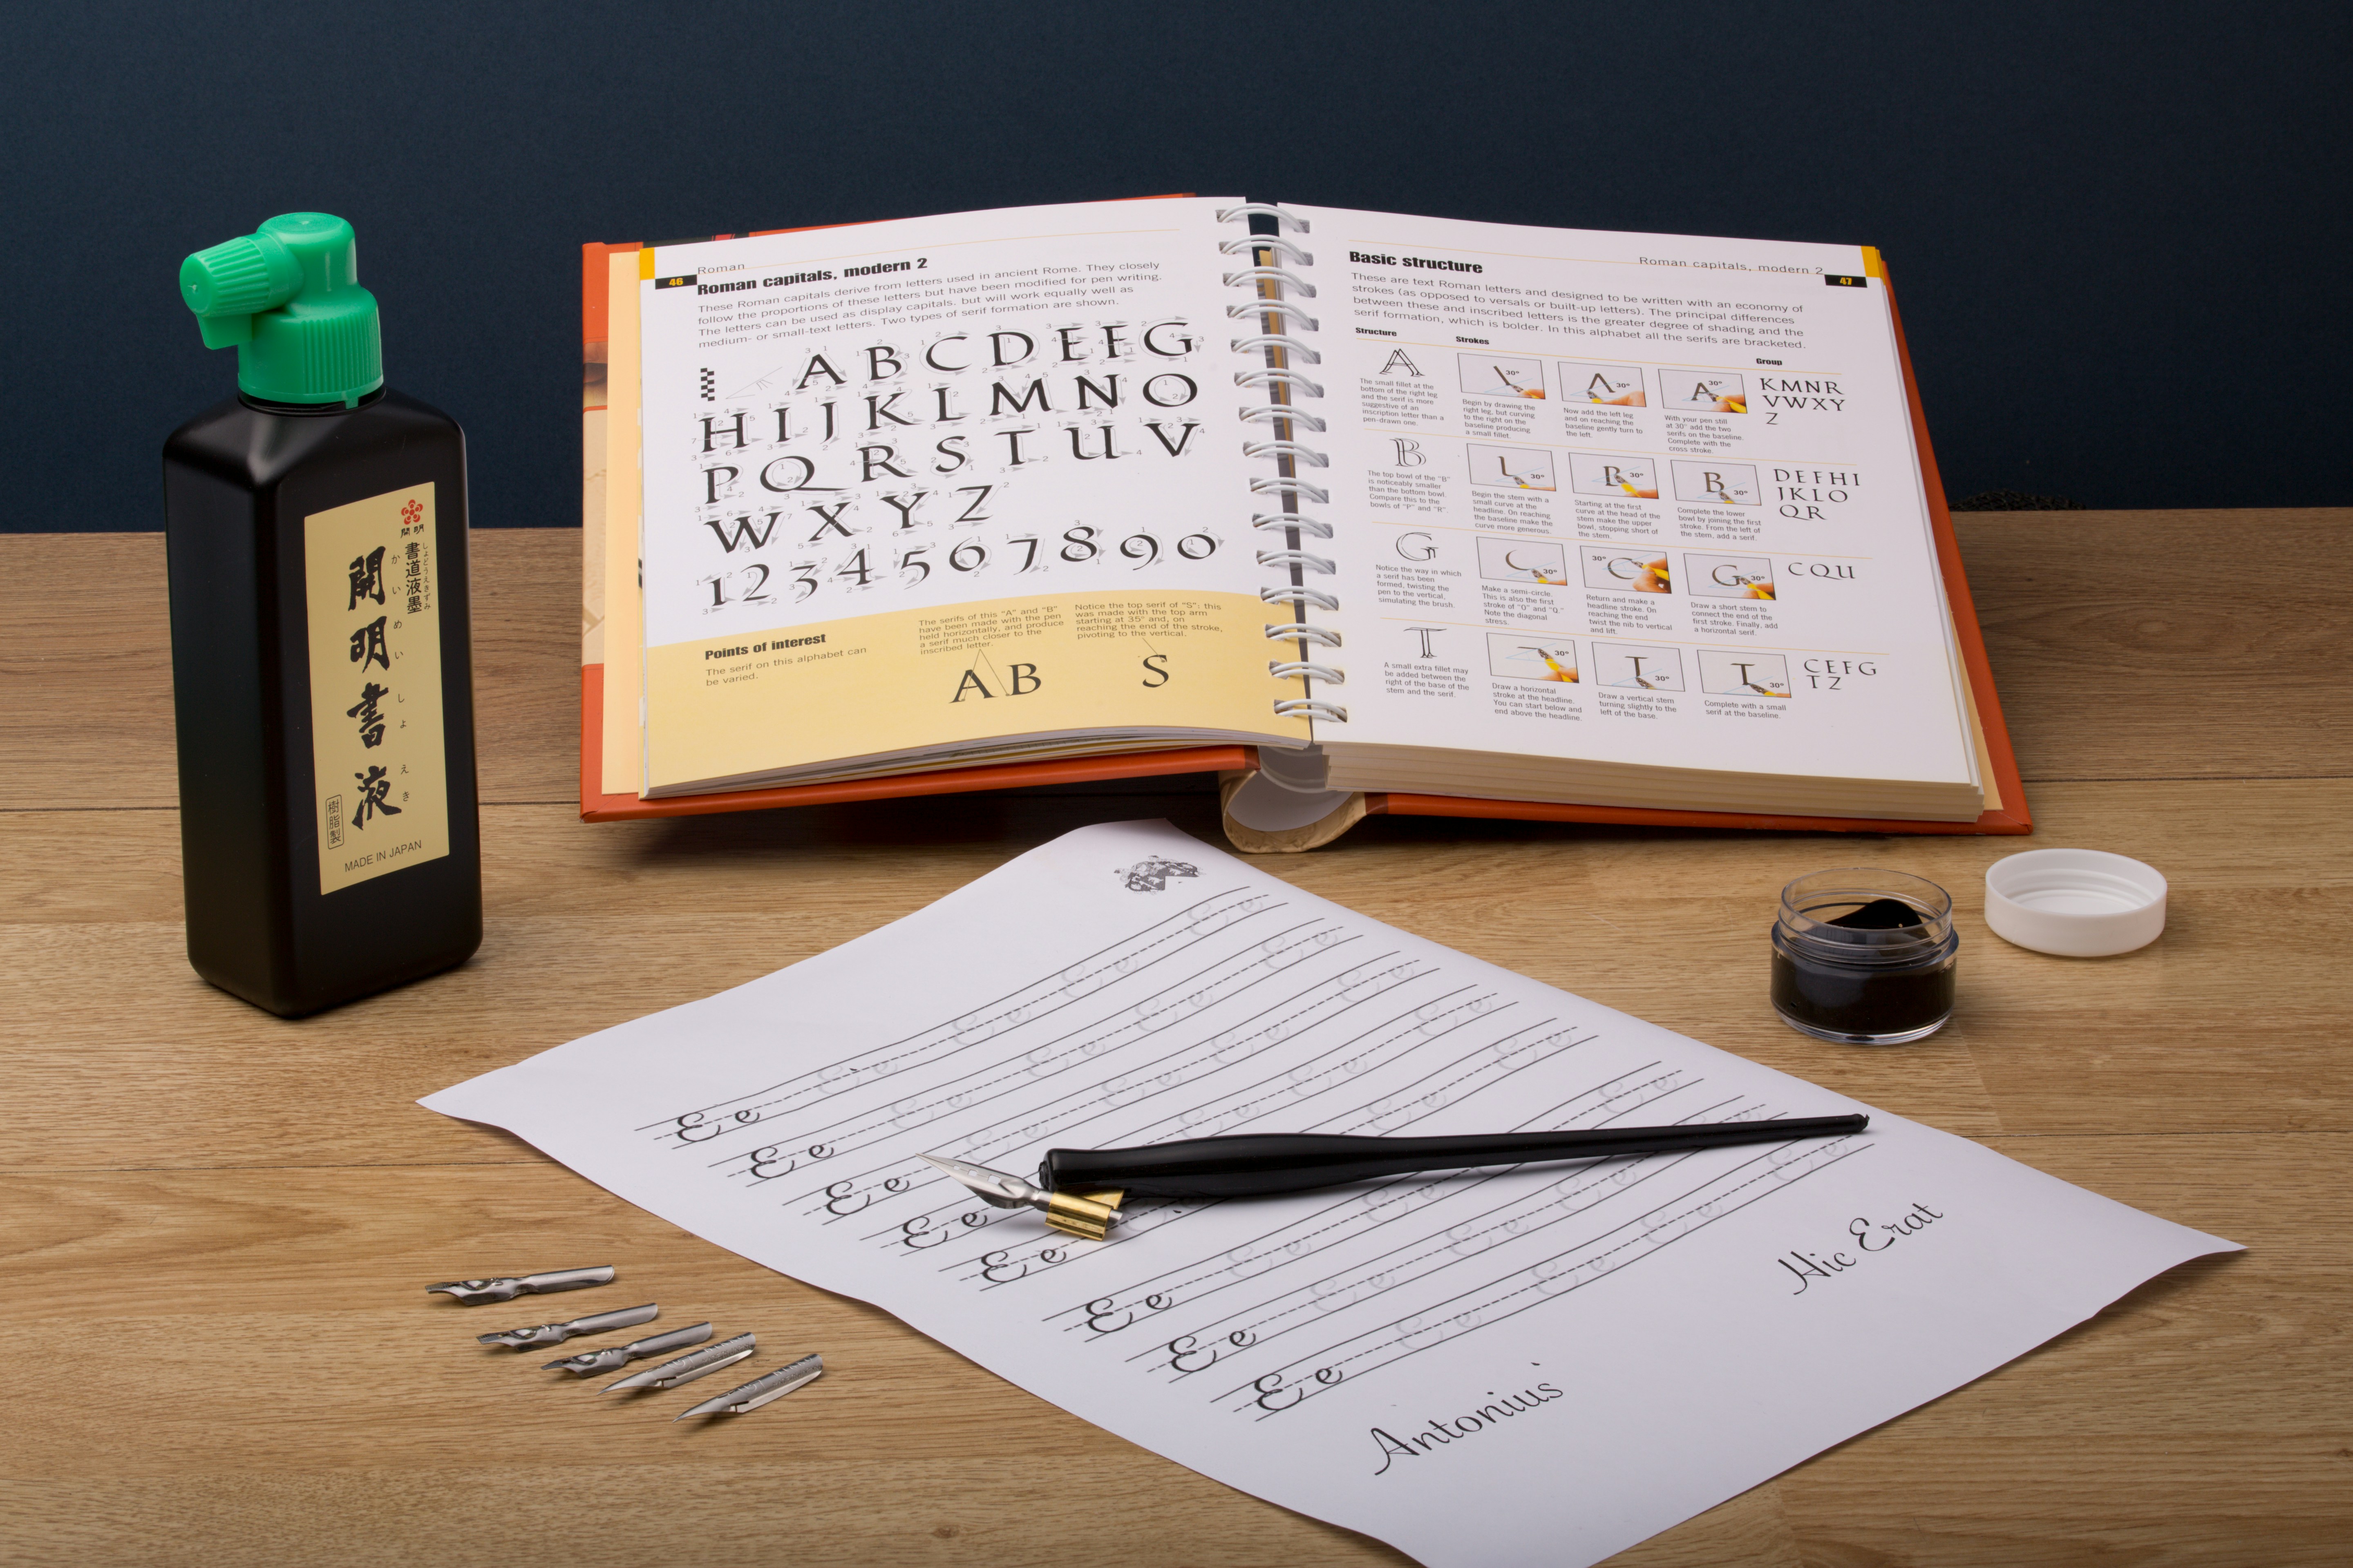 開明
書道液墨
しょどうえきずみ
開明書液
かいめいしょえき
樹脂製
MADE IN JAPAN
46
Roman
Roman capitals, modern 2
These Roman capitals derive from letters used in ancient Rome. They closely
follow the proportions of these letters but have been modified for pen writing.
The letters can be used as display capitals, but will work equally well as
medium- or small-text letters. Two types of serif formation are shown.
ABCDEFG
HIJKLMNO
PQRSTUV
WXYZ
1234567890
Points of interest
The serif on this alphabet can
be varied.
The serifs of this "A" and "B"
have been made with the pen
held horizontally, and produce
a serif much closer to the
inscribed letter.
AB
Notice the top serif of "S": this
was made with the top arm
starting at 35° and, on
reaching the end of the stroke,
pivoting to the vertical.
S
Roman capitals, modern 2
47
Basic structure
These are text Roman letters and designed to be written with an economy of
strokes (as opposed to versals or built-up letters). The principal differences
between these and inscribed letters is the greater degree of shading and the
serif formation, which is bolder. In this alphabet all the serifs are bracketed.
Structure
Strokes
Group
A
The small fillet at the
bottom of the right leg
and the serif is more
suggestive of an
inscription letter than a
pen-drawn one.
30°
Begin by drawing the
right leg, but curving
to the right on the
baseline producing
a small fillet.
30°
Now add the left leg
and on reaching the
baseline gently turn to
the left.
A
30°
With your pen still
at 30° add the two
serifs on the baseline.
Complete with the
cross stroke.
KMNR
VWXY
Z
B
The top bowl of the "B"
is noticeably smaller
than the bottom bowl.
Compare this to the
bowls of "P" and "R".
30°
Begin the stem with a
small curve at the
headline. On reaching
the baseline make the
curve more generous.
30°
Starting at the first
curve at the head of the
stem make the upper
bowl, stopping short of
the stem.
B
30°
Complete the lower
bowl by joining the first
stroke. From the left of
the stem, add a serif.
DEFHI
JKLO
QR
G
Notice the way in which
a serif has been
formed, twisting the
pen to the vertical,
simulating the brush.
30°
Make a semi-circle.
This is also the first
stroke of "O" and "Q."
Note the diagonal
stress.
30°
Return and make a
headline stroke. On
reaching the end
twist the nib to vertical
and lift.
G
30°
Draw a short stem to
connect the end of the
first stroke. Finally, add
a horizontal serif.
CQU
T
A small extra fillet may
be added between the
right of the base of the
stem and the serif.
30°
Draw a horizontal
stroke at the headline.
You can start below and
end above the headline.
30°
Draw a vertical stem
turning slightly to the
left of the base.
T
30°
Complete with a small
serif at the baseline.
CEFG
TZ
Ee Ee Ee Ee Ee
Ee Ee Ee Ee Ee
Ee Ee Ee Ee Ee
Ee Ee Ee Ee Ee
Ee Ee Ee Ee
Ee Ee Ee Ee Ee
Ee Ee Ee Ee Ee
Ee Ee Ee Ee Ee
Antonius Hic Erat